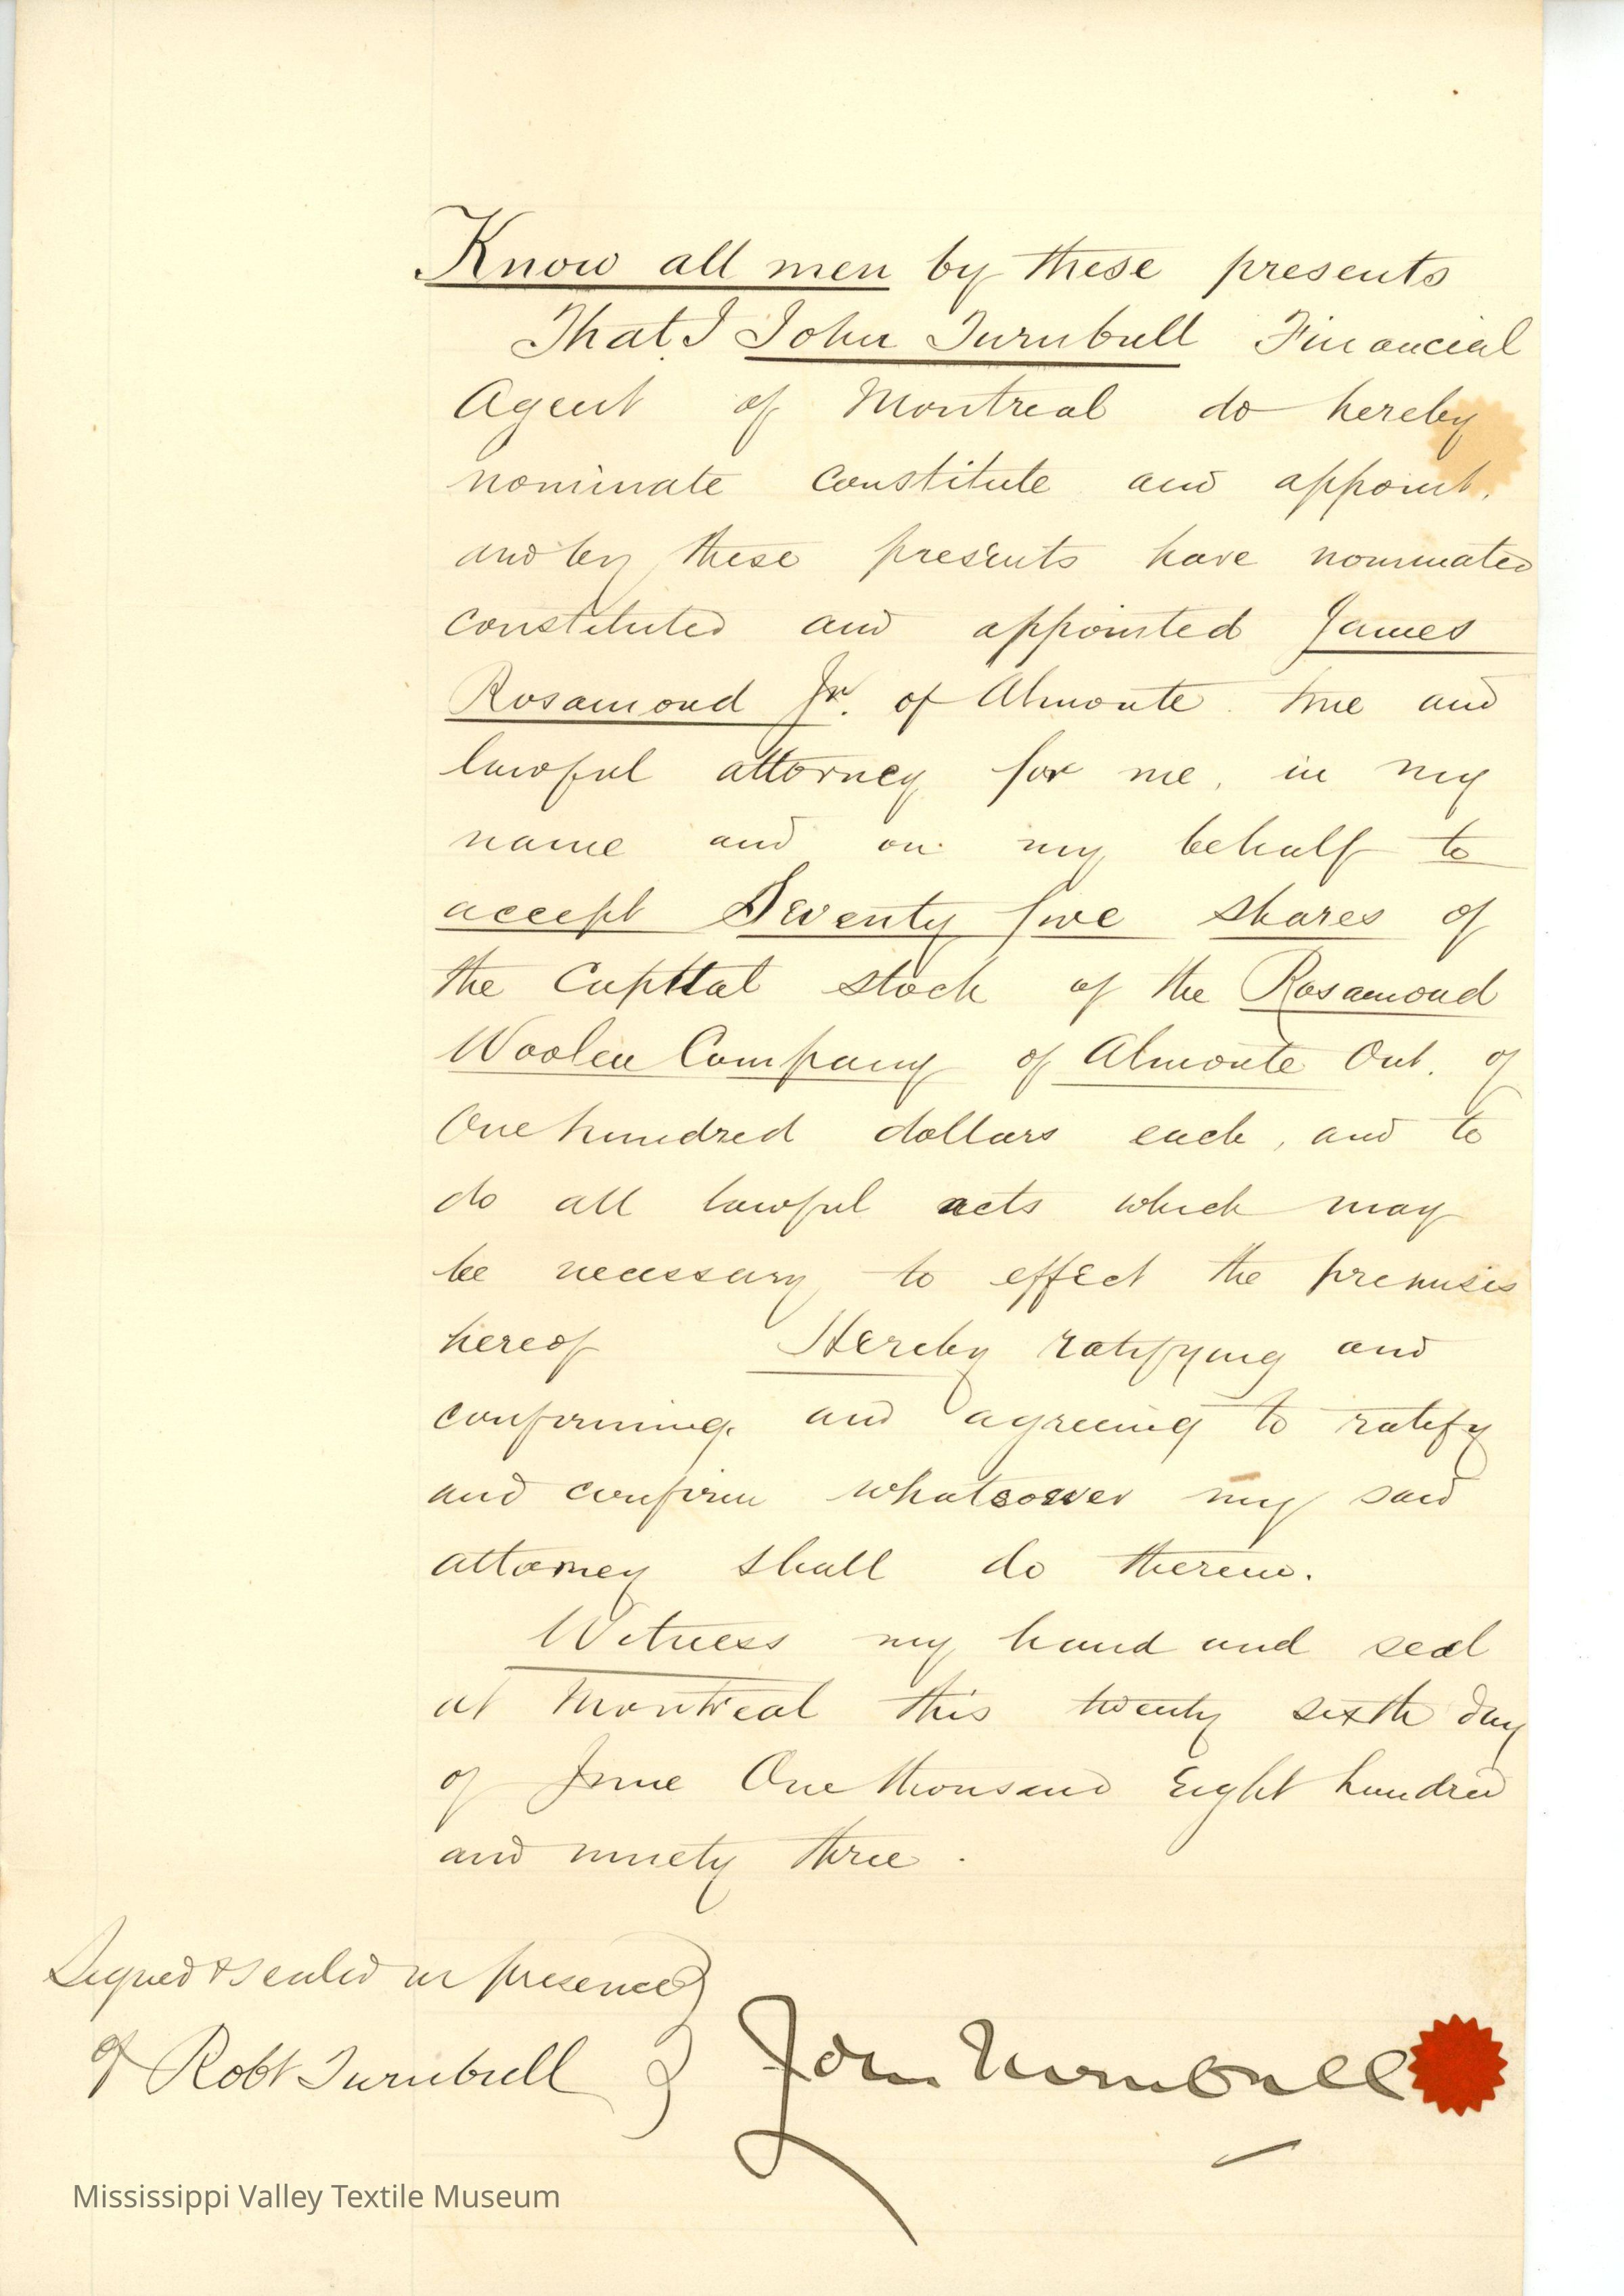 Know all men by these presents
That I John Turnbull Financial
Agent of Montreal do hereby
nominate constitute and appoint,
and by these presents have nominated
constituted and appointed James
Rosamond Jr. of Almonte true and
lawful attorney for me, in my
name and on my behalf to
accept Seventy five shares of
the Capital stock of the Rosamond
Woolen Company of Almonte Ont. of
One hundred dollars each, and to
do all lawful acts which may
be necessary to effect the premises
hereof Hereby ratifying and
confirming and agreeing to ratify
and confirm whatsoever my said
attorney shall do therein.
Witness my hand and seal
at Montreal this twenty sixth day
of June One thousand Eight hundred
and ninety three.
Signed & sealed in presence
of Robt Turnbull
John Turnbull
Mississippi Valley Textile Museum